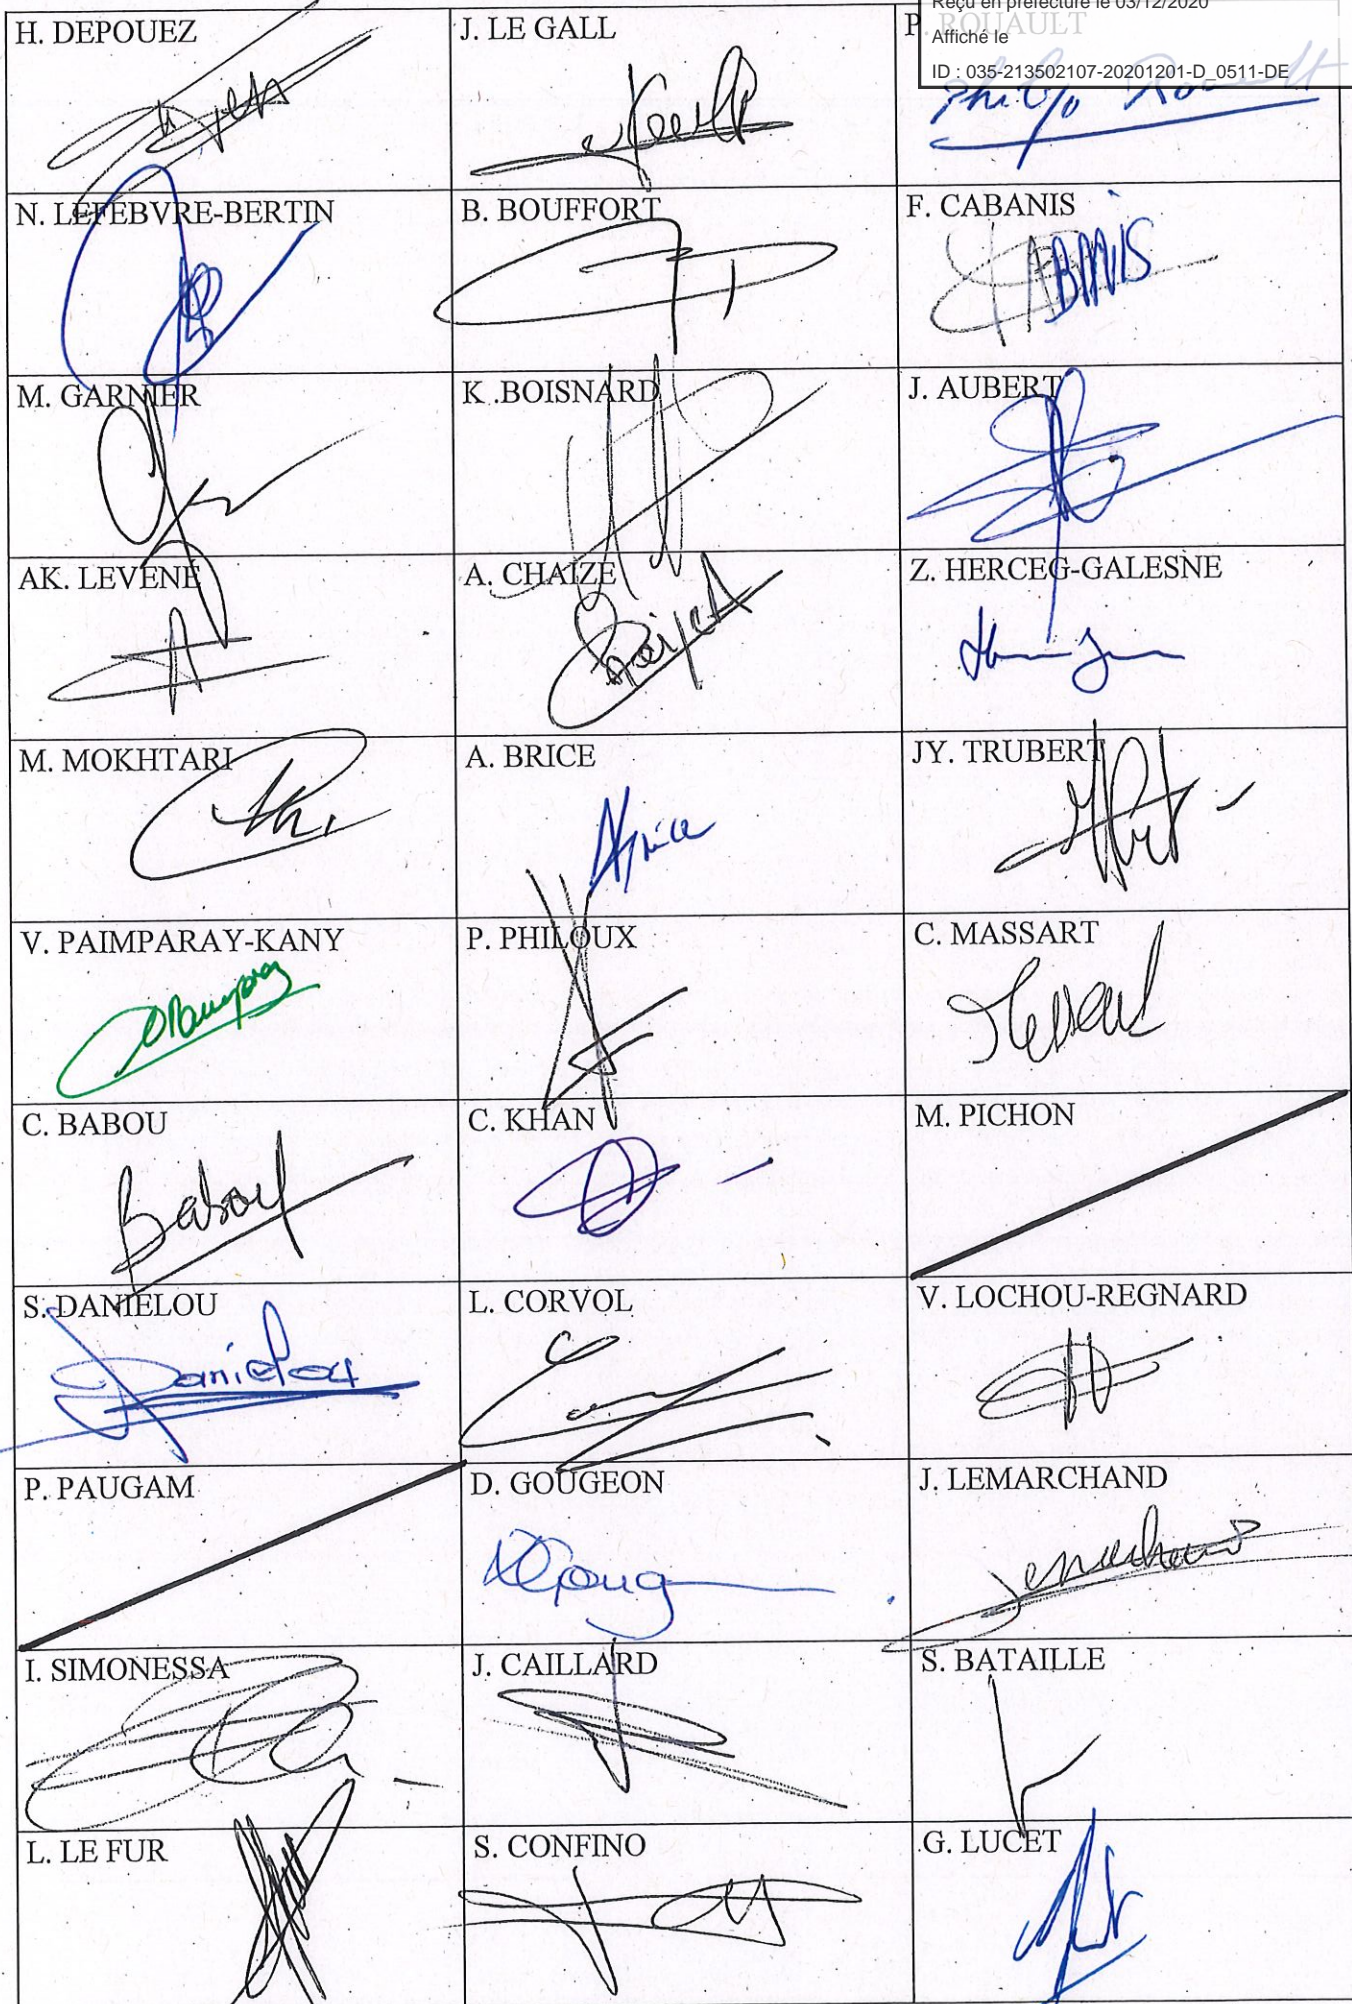 Reçu en préfecture le 03/12/2020
Affiché le
ID : 035-213502107-20201201-D_0511-DE
H. DEPOUEZ
J. LE GALL
P. ROUAULT
N. LEFEBVRE-BERTIN
B. BOUFFORT
F. CABANIS
M. GARNIER
K .BOISNARD
J. AUBERT
AK. LEVENE
A. CHAIZE
Z. HERCEG-GALESNE
M. MOKHTARI
A. BRICE
JY. TRUBERT
V. PAIMPARAY-KANY
P. PHILOUX
C. MASSART
C. BABOU
Babou
C. KHAN
M. PICHON
S. DANIELOU
Danielou
L. CORVOL
V. LOCHOU-REGNARD
P. PAUGAM
D. GOUGEON
J. LEMARCHAND
I. SIMONESSA
J. CAILLARD
S. BATAILLE
L. LE FUR
S. CONFINO
G. LUCET